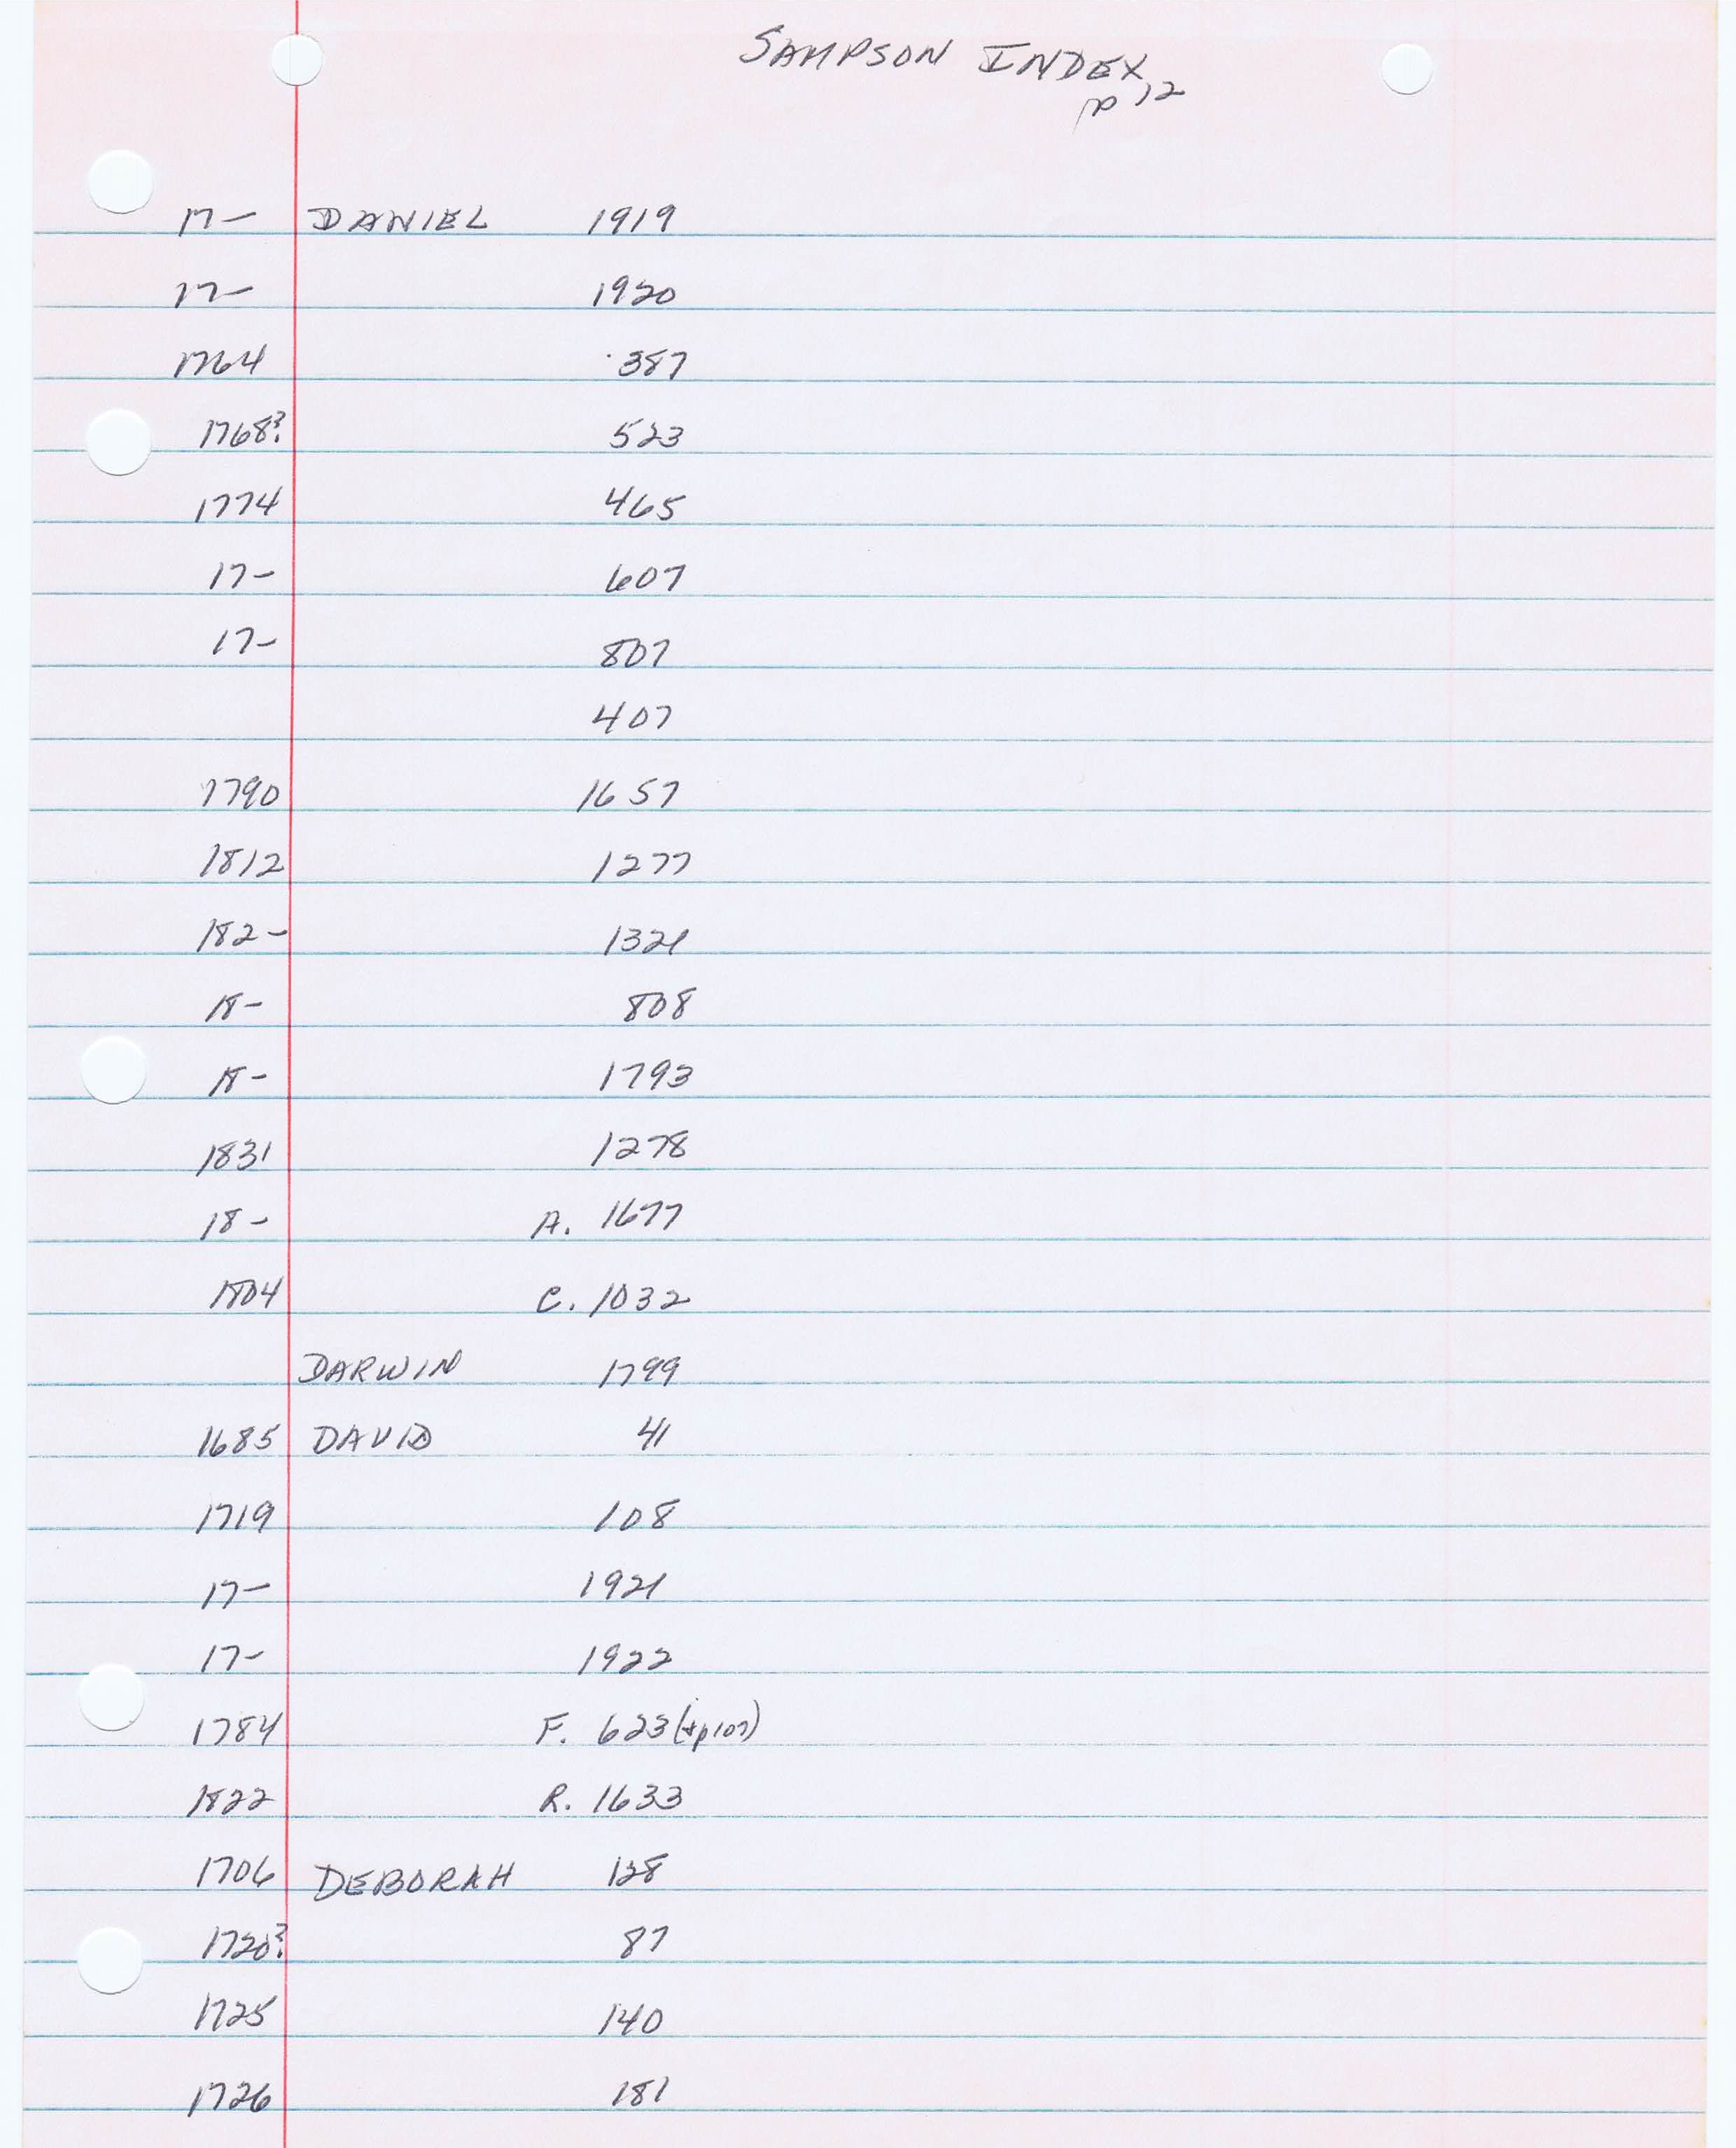 SAMPSON INDEX
p 12
17— DANIEL 1919
17— 1920
1764 387
1768? 523
1774 465
17- 607
17- 807
407
1790 1657
1812 1277
182- 1321
18- 808
18- 1793
1831 1278
18- A. 1677
1804 C. 1032
DARWIN 1799
1685 DAVID 41
1719 108
17— 1921
17- 1922
1784 F. 623 (+p107)
1822 R. 1633
1706 DEBORAH 128
1720? 87
1725 140
1726 181